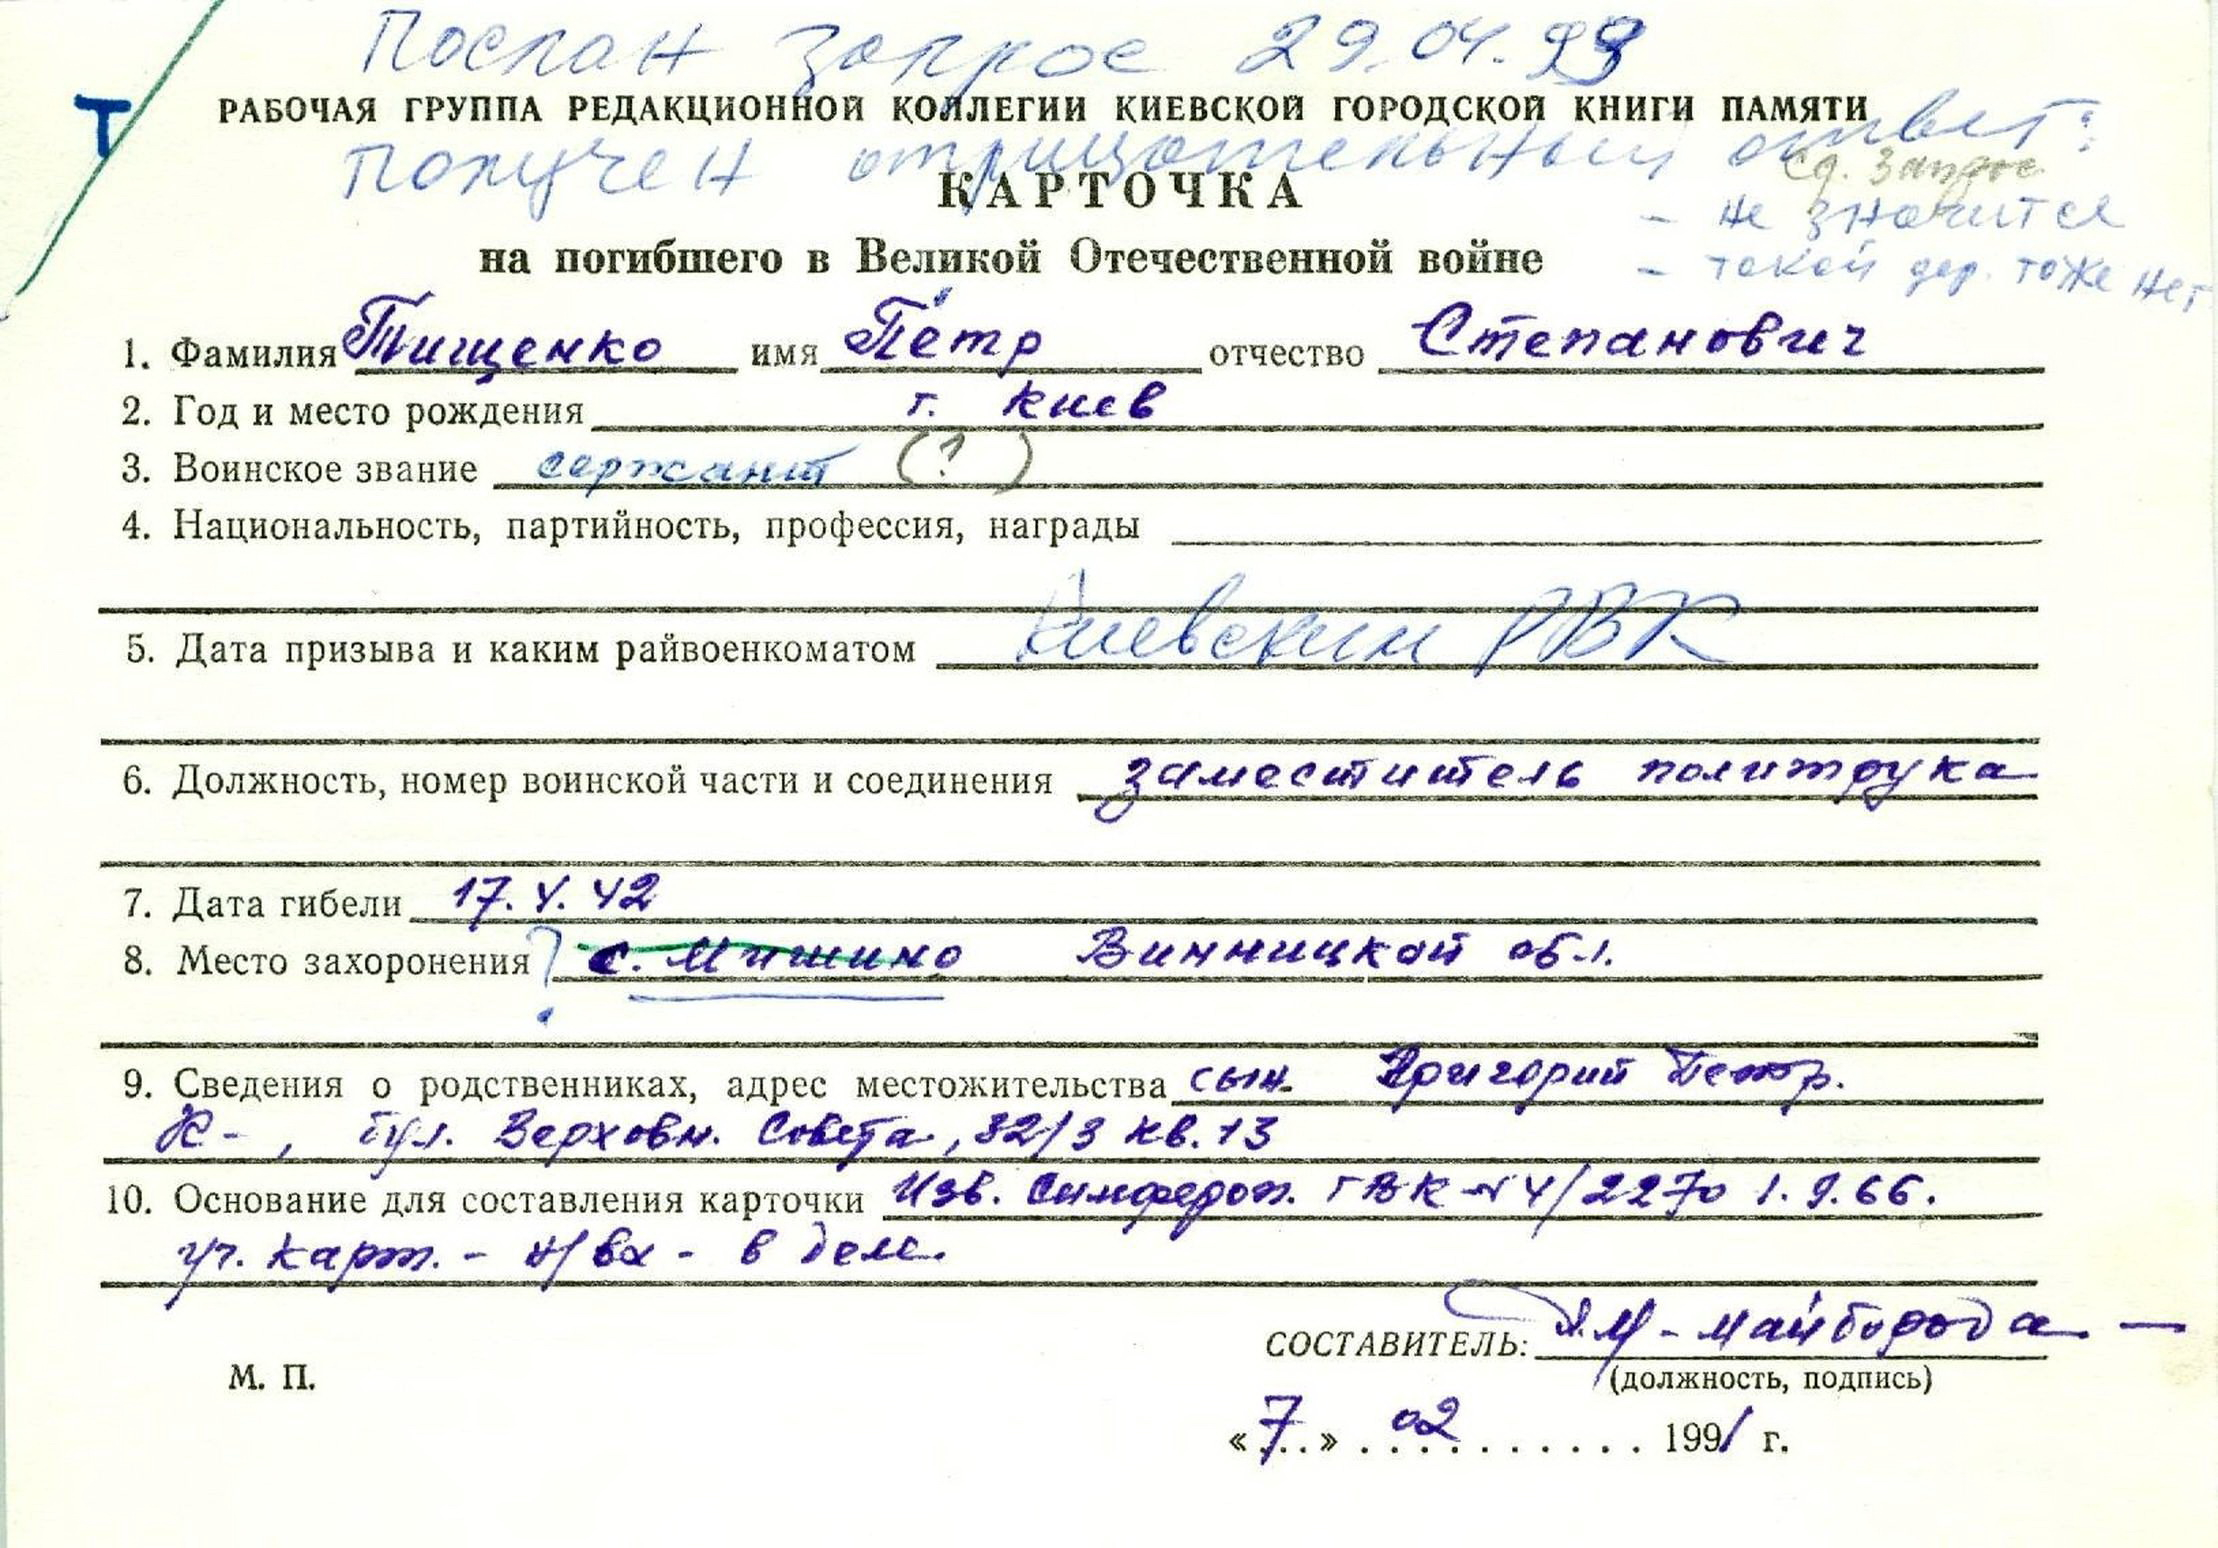 Послан запрос 29.04.99
Т
РАБОЧАЯ ГРУППА РЕДАКЦИОННОЙ КОЛЛЕГИИ КИЕВСКОЙ ГОРОДСКОЙ КНИГИ ПАМЯТИ
Получен отрицательный ответ:
запрос
КАРТОЧКА
- не значится
на погибшего в Великой Отечественной войне
- такой дер. тоже нет
1. Фамилия Тищенко имя Пётр отчество Степанович
2. Год и место рождения г. Киев
3. Воинское звание сержант (?)
4. Национальность, партийность, профессия, награды
5. Дата призыва и каким райвоенкоматом Киевским РВК
6. Должность, номер воинской части и соединения заместитель политрука
7. Дата гибели 17.V.42
8. Место захоронения ? с. Мишино Винницкой обл.
9. Сведения о родственниках, адрес местожительства сын Григорий Петр.
К-, бул. Верховн. Совета, 32/3 кв. 13
10. Основание для составления карточки Изв. Симфероп. ГВК №4/2270 1.9.66.
уч. карт. - н/вх - в деле.
СОСТАВИТЕЛЬ: Майборода
(должность, подпись)
М. П.
«7» 02 1991 г.